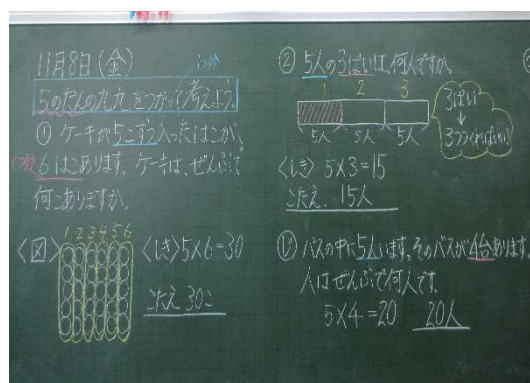 11月8日(金)
5のだんの九九をつかって考えよう。
① ケーキが5こずつ入ったはこが、
6はこあります。ケーキは、ぜんぶで
何こありますか。
1 2 3 4 5 6
<図>
<しき>5×6=30
こたえ 30こ
② 5人の3ばいは、何人ですか。
1 2 3
5人 5人 5人
3ばい
↓
3つつくればいい
<しき> 5×3=15
こたえ、15人
バスの中に5人います。そのバスが4台あります。
人はぜんぶで何人です。
5×4=20 20人